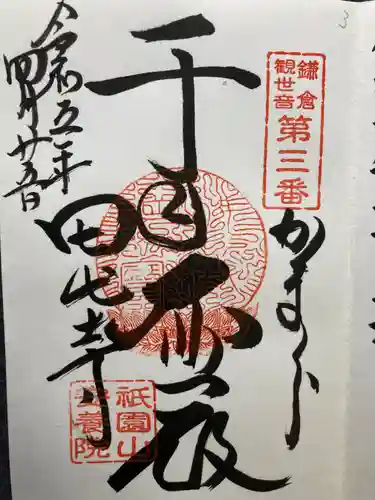 3
鎌倉
観世音
第三番
かまくら
千
田代寺
祇園山
安養院
令和五年
四月廿五日